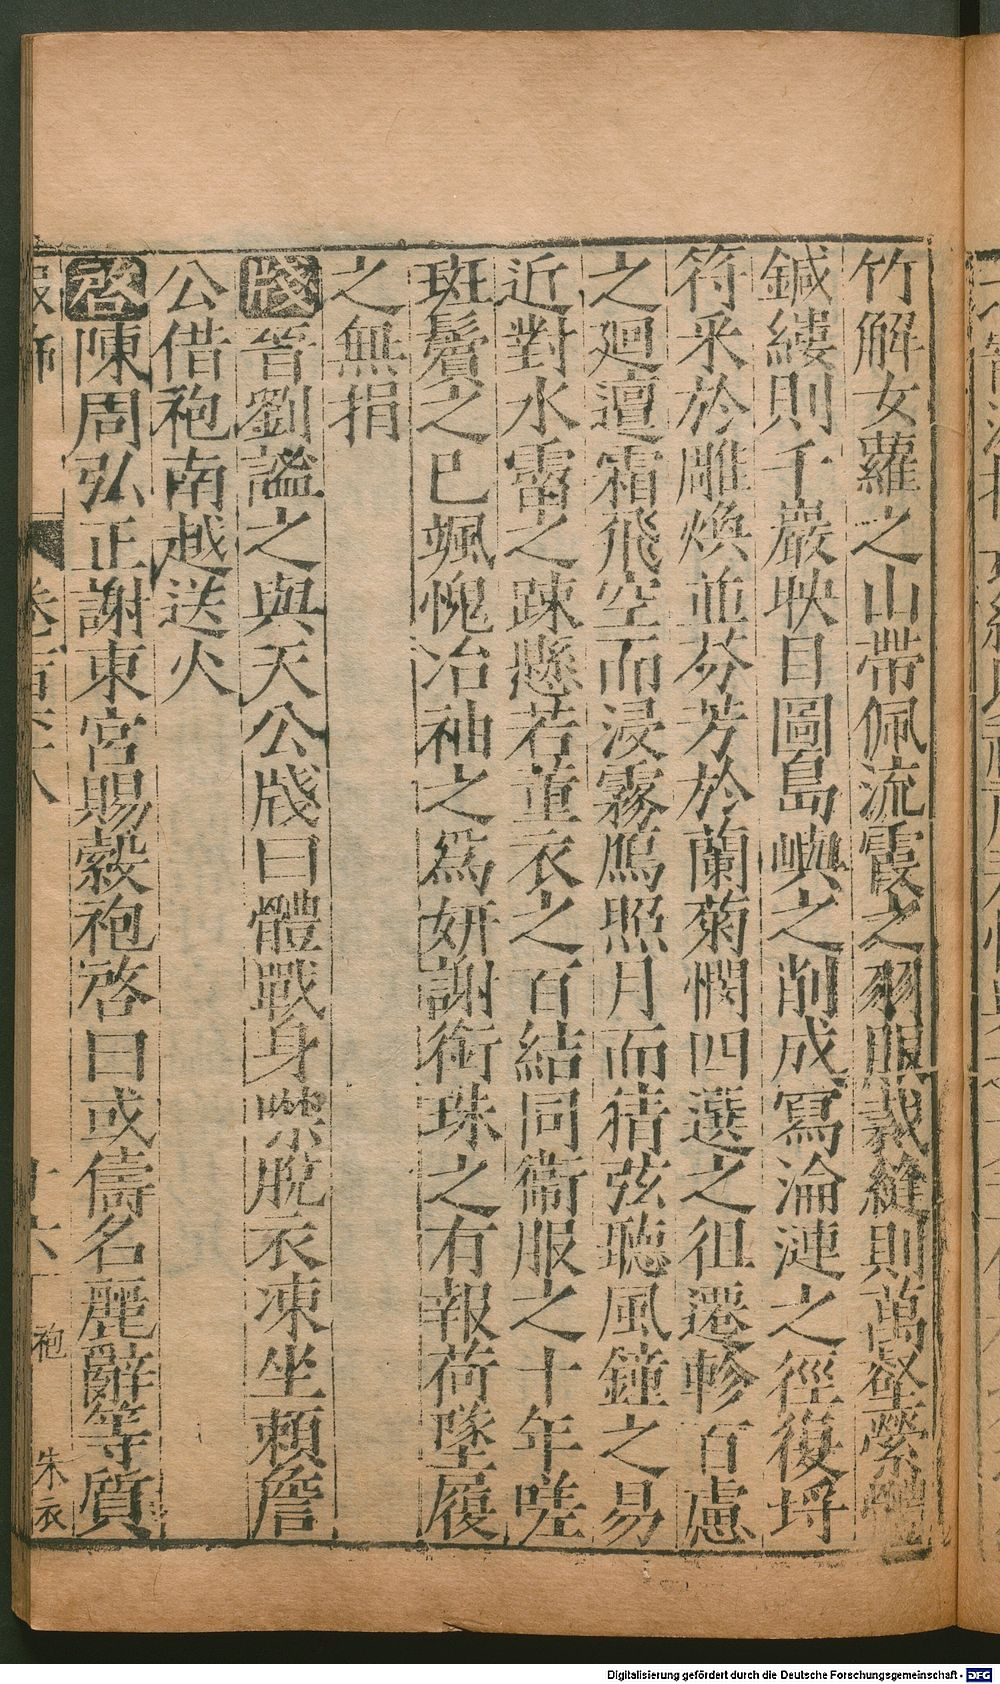 竹解女蘿之山帶佩流霞之羽服裁縫則萬壑縈
鍼縷則千巖映目圖島嶼之削成寫淪漣之徑復埒
符采於雕煥並芬芳於蘭菊憫四選之徂遷軫百慮
之廻邅霜飛空而浸霧鴈照月而猜弦聽風鐘之易
近對水霤之踈懸若董衣之百結同衞服之十年嗟
斑鬢之已颯愧冶袖之爲妍謝銜珠之有報荷墜履
之無捐
牋晉劉謐之與天公牋曰體戰身噤脫衣凍坐賴詹
公借袍南越送火
啓陳周弘正謝東宮賜縠袍啓曰或儔名麗辭等質
服飾 卷 八 六 袍 朱衣
Digitalisierung gefördert durch die Deutsche Forschungsgemeinschaft - DFG